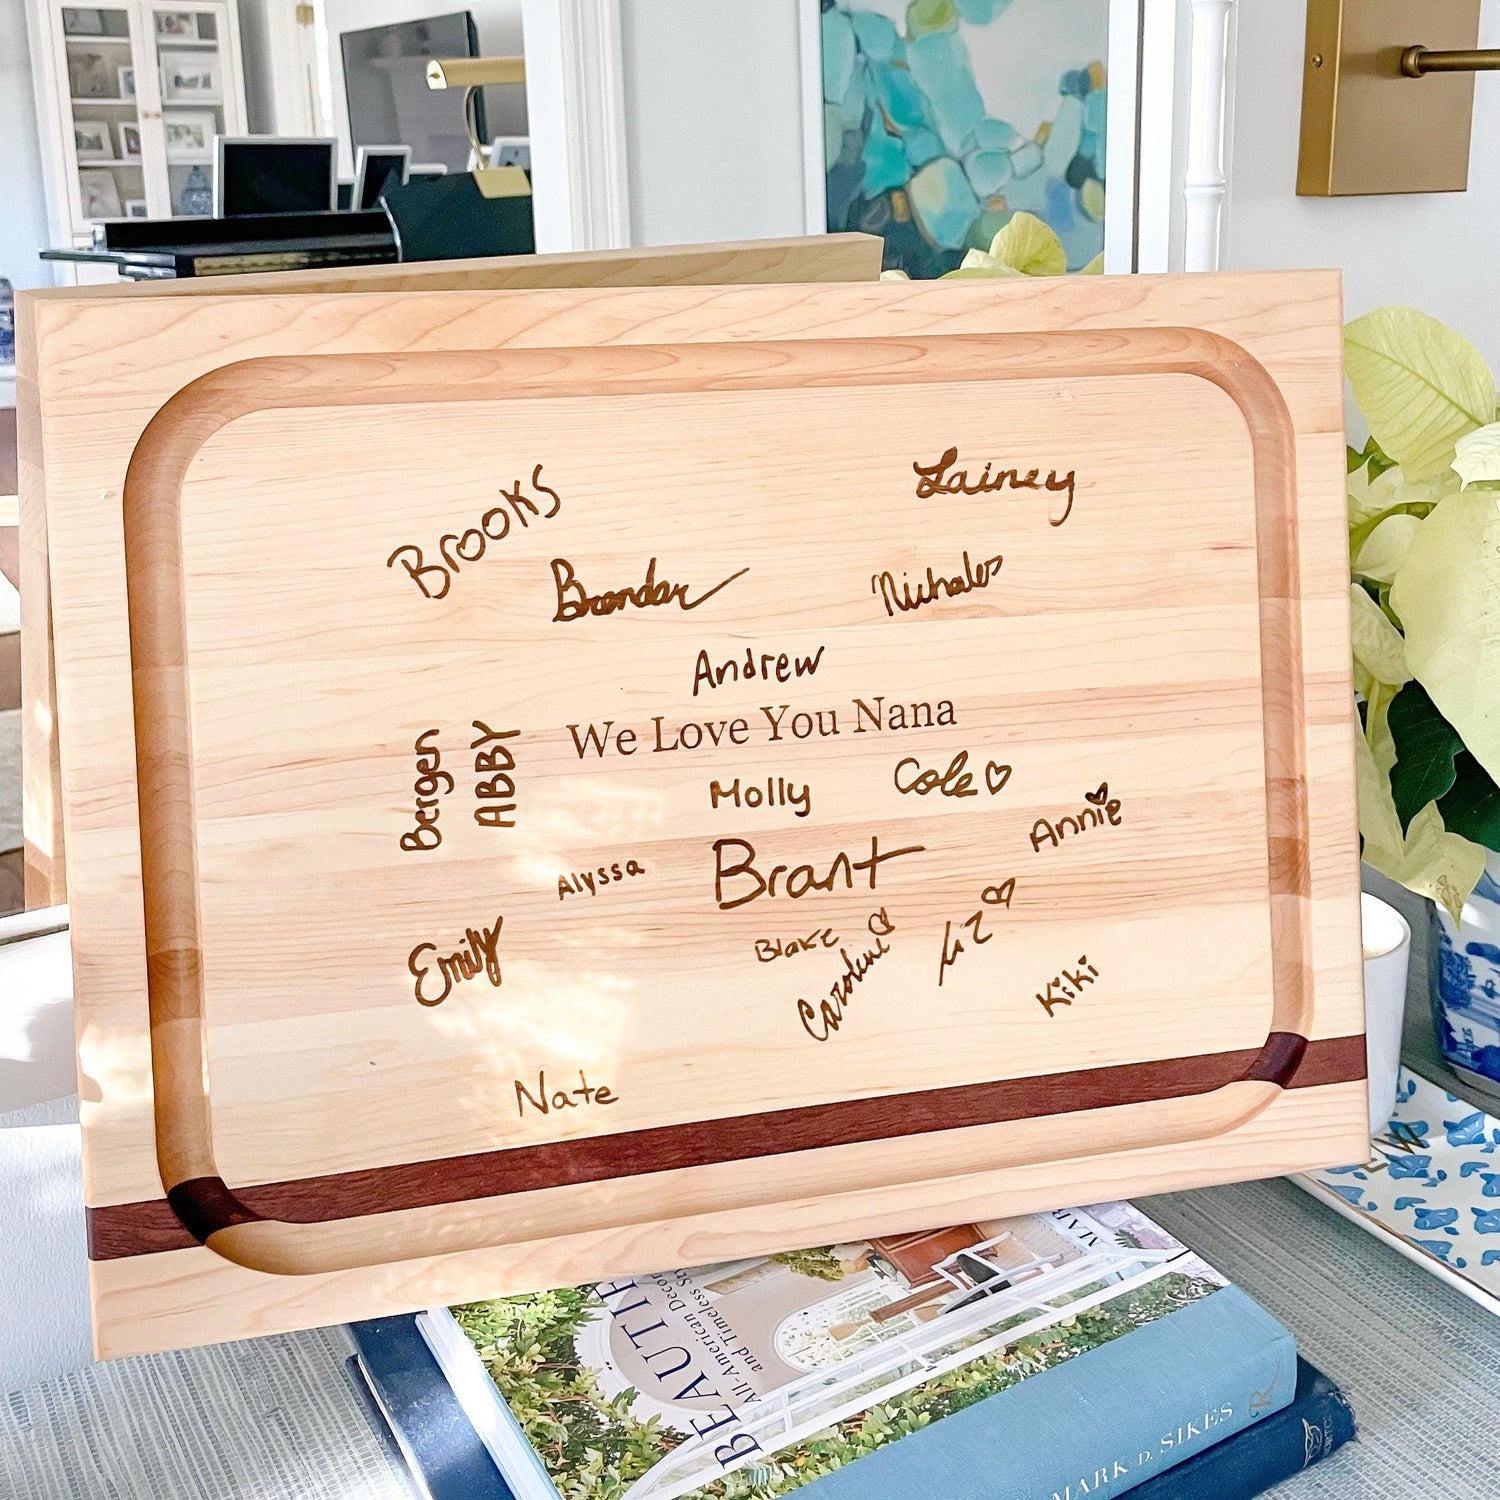 Brooks
Lainey
Brendan
Nicholas
Andrew
We Love You Nana
Bergen
ABBY
Molly
Cole
Annie
Alyssa
Brant
Emily
Blake
Caroline
Liz
Kiki
Nate
BEAUTIF
All-American Decor
and Timeless St
MAR
MARK D. SIKES